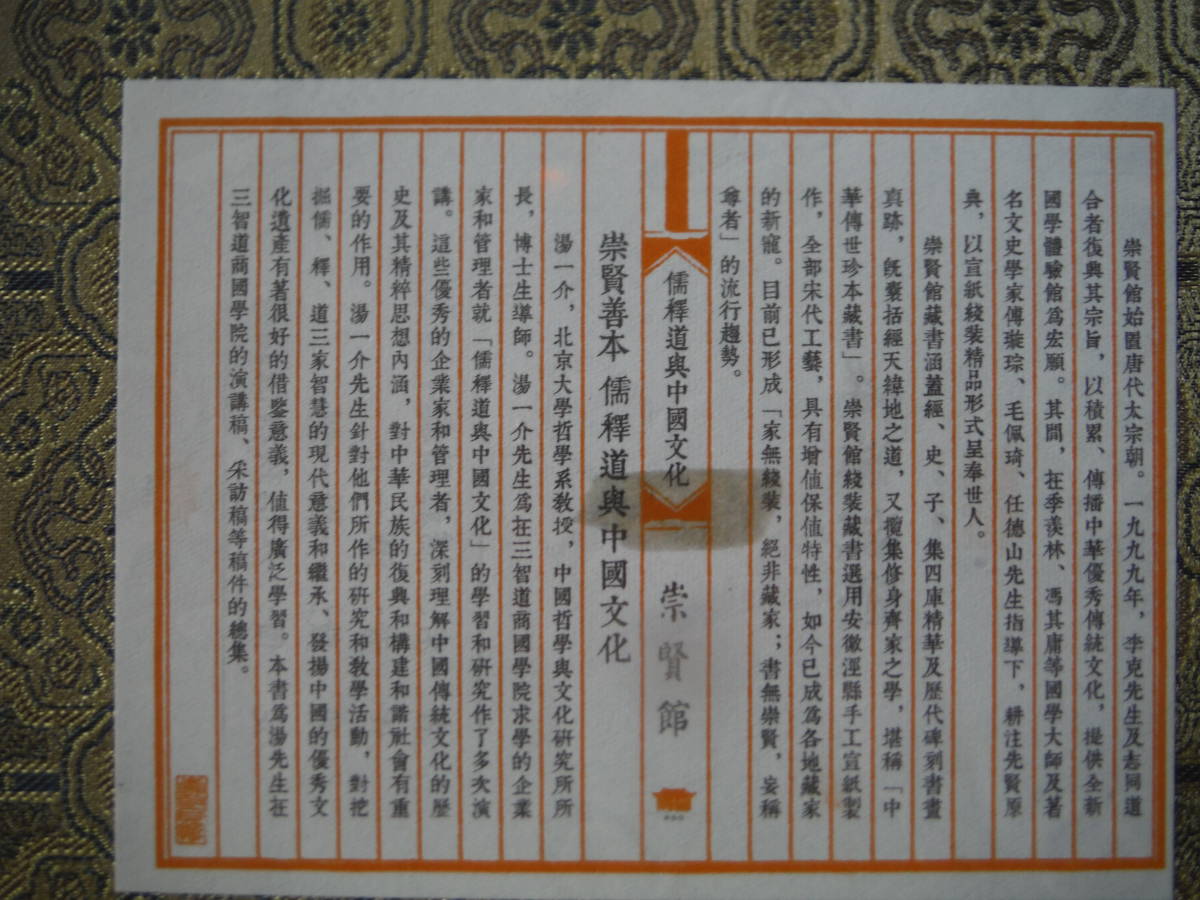 崇賢館始置唐代太宗朝。一九九九年，李克先生及志同道
合者復興其宗旨，以積累、傳播中華優秀傳統文化，提供全新
國學體驗館爲宏願。其間，在季羨林、馮其庸等國學大師及著
名文史學家傅璇琮、毛佩琦、任德山先生指導下，耕注先賢原
典，以宣紙綫裝精品形式呈奉世人。
崇賢館藏書涵蓋經、史、子、集四庫精華及歷代碑刻書畫
真跡，既囊括經天緯地之道，又攬集修身齊家之學，堪稱「中
華傳世珍本藏書」。崇賢館綫裝藏書選用安徽涇縣手工宣紙製
作，全部宋代工藝，具有增值保值特性，如今已成爲各地藏家
的新寵。目前已形成「家無綫裝，絕非藏家；書無崇賢，妄稱
尊者」的流行趨勢。
儒釋道與中國文化
崇賢館
崇賢善本 儒釋道與中國文化
湯一介，北京大學哲學系教授，中國哲學與文化研究所所
長，博士生導師。湯一介先生爲在三智道商國學院求學的企業
家和管理者就「儒釋道與中國文化」的學習和研究作了多次演
講。這些優秀的企業家和管理者，深刻理解中國傳統文化的歷
史及其精粹思想內涵，對中華民族的復興和構建和諧社會有重
要的作用。湯一介先生針對他們所作的研究和教學活動，對挖
掘儒、釋、道三家智慧的現代意義和繼承、發揚中國的優秀文
化遺產有著很好的借鑒意義，值得廣泛學習。本書爲湯先生在
三智道商國學院的演講稿、采訪稿等稿件的總集。